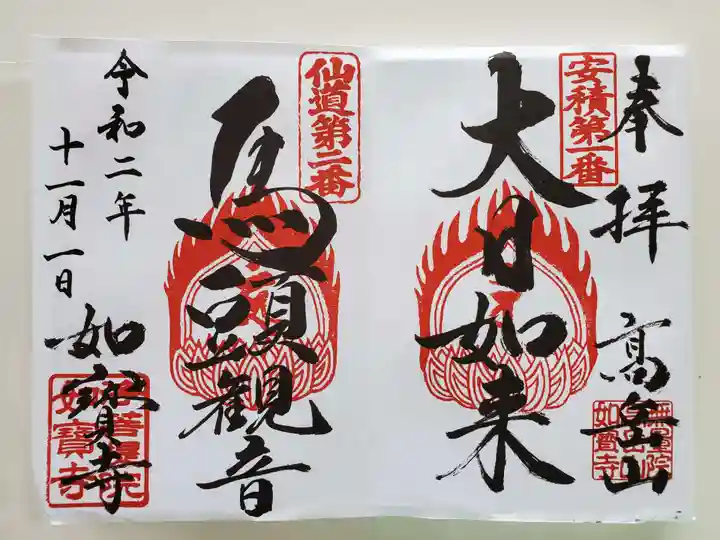 奉拝
高岳山
安積第一番
大日如来
仙道第二番
馬頭観音
令和二年
十一月一日
如寳寺
如寶寺
無量院
如寶寺